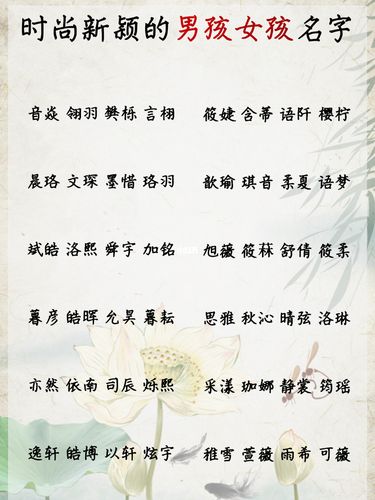 时尚新颖的男孩女孩名字
音焱 翎羽 樊栎 言栩 筱婕 含蒂 语阡 樱柠
晨珞 文琛 墨惜 珞羽 歆瑜 琪音 柔夏 语梦
斌皓 洛熙 舜宇 加铭 旭薇 筱菻 舒倩 筱柔
暮彦 皓晖 允昊 暮耘 思雅 秋沁 晴弦 洛琳
亦然 依南 司辰 烁熙 采漾 珈娜 静裳 筠瑶
逸轩 皓博 以轩 炫宇 雅雪 萱薇 雨希 可薇